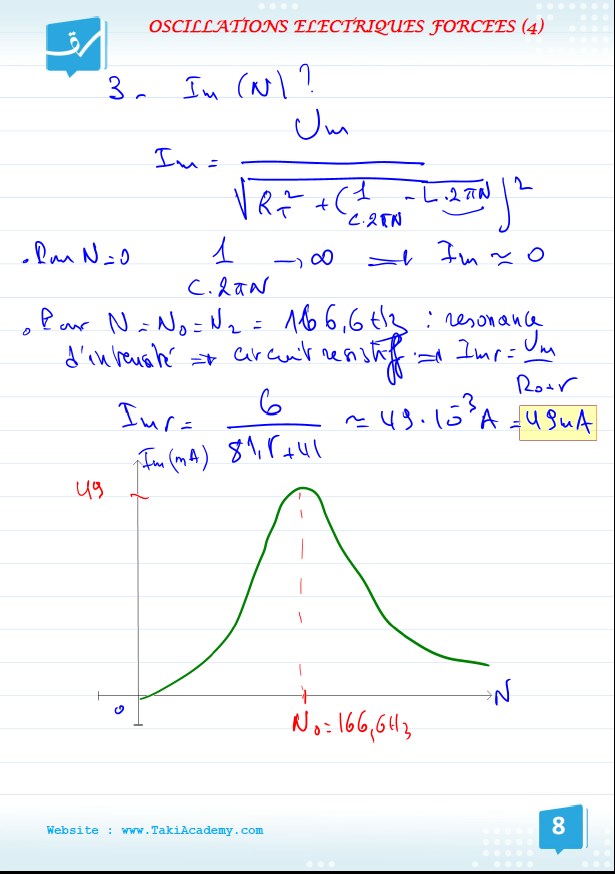 OSCILLATIONS ELECTRIQUES FORCEES (4)
3- Im (N) ?
Im = Um / √(RT² + (1/(C.2πN) - L.2πN)²)
. Pour N=0 1/(C.2πN) → ∞ ⇒ Im ≃ 0
. Pour N=N0=N2 = 166,6Hz : resonance
d'intensité ⇒ circuit resistif ⇒ Imr = Um/(R0+r)
Imr = 6/(81,5+41) ≃ 49.10⁻³A = 49mA
Im(mA)
49
0
N
N0=166,6Hz
Website : www.TakiAcademy.com
8